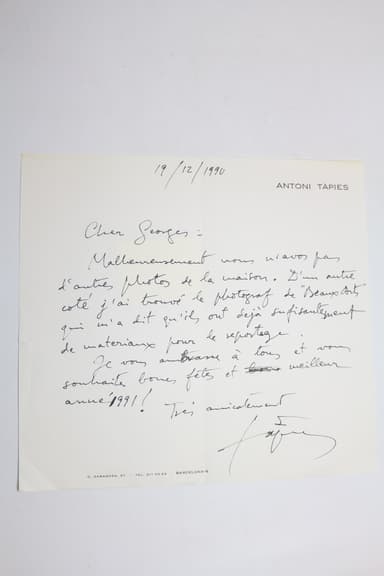 19/12/1990
ANTONI TAPIES
Cher Georges =
Malheureusement nous n'avos pas
d'autres photos de la maison. D'un autre
coté j'ai trouvé le photograf de "Beaux Arts"
qui m'a dit qu'ils ont dejà sufisantement
de materiaux pour le reportage.
Je vous ambrasse à tous et vous
souhaite bones fêtes et meilleur
anné 1991!
Très amicalement
Tàpies
C. ZARAGOZA, 57 - TEL. 217 33 98 - BARCELONA-6